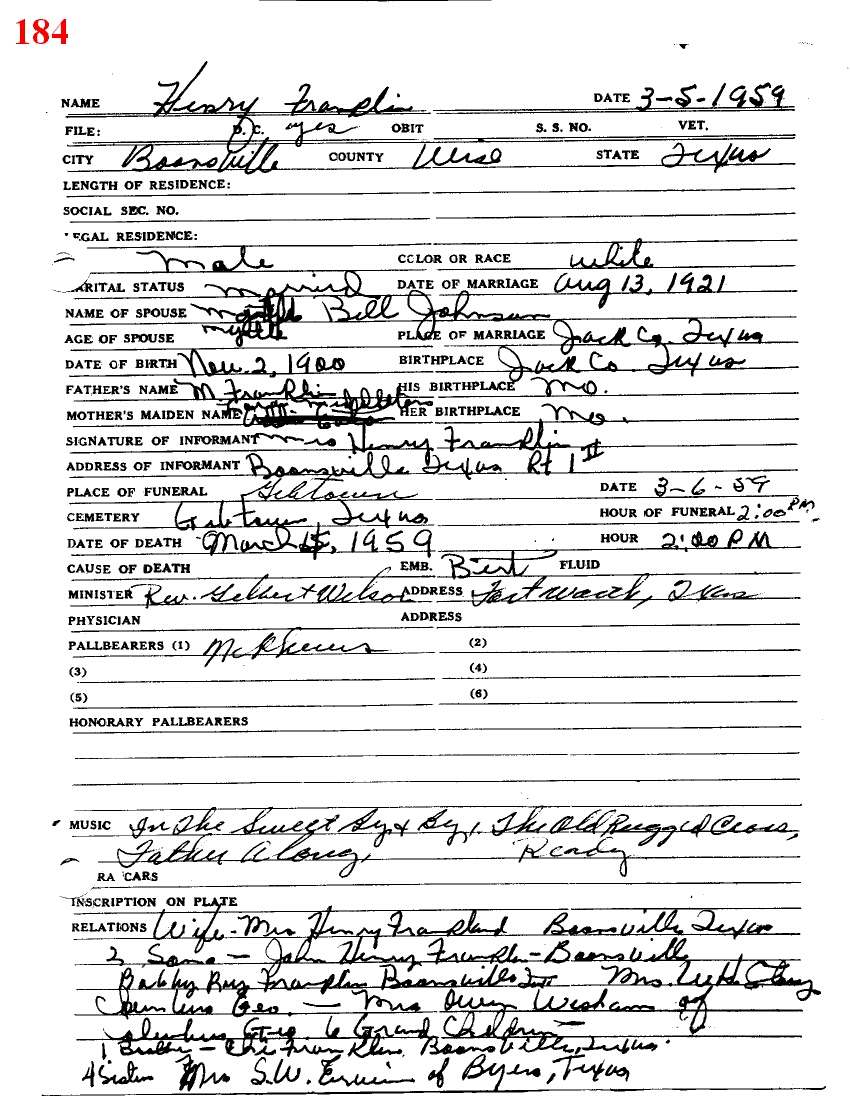 184
NAME Henry Franklin DATE 3-5-1959
FILE: D.C. yes OBIT S. S. NO. VET.
CITY Boonsville COUNTY Wise STATE Texas
LENGTH OF RESIDENCE:
SOCIAL SEC. NO.
EGAL RESIDENCE:
male COLOR OR RACE white
ARITAL STATUS married DATE OF MARRIAGE Aug 13, 1921
NAME OF SPOUSE Bell Johnson
AGE OF SPOUSE Myrtle PLACE OF MARRIAGE Jack Co. Texas
DATE OF BIRTH Nov. 2, 1900 BIRTHPLACE Jack Co. Texas
FATHER'S NAME M. Franklin HIS BIRTHPLACE Mo.
MOTHER'S MAIDEN NAME Middleton HER BIRTHPLACE Mo.
SIGNATURE OF INFORMANT Mrs Henry Franklin
ADDRESS OF INFORMANT Boonsville Texas Rt 1
PLACE OF FUNERAL Gibtown DATE 3-6-59
CEMETERY Gibtown, Texas HOUR OF FUNERAL 2:00 PM
DATE OF DEATH March 5, 1959 HOUR 2:00 PM
CAUSE OF DEATH EMB. Bert FLUID
MINISTER Rev. Gilbert Wilson ADDRESS Fort Worth, Texas
PHYSICIAN ADDRESS
PALLBEARERS (1) Nephews (2)
(3) (4)
(5) (6)
HONORARY PALLBEARERS
MUSIC In The Sweet By & By, The Old Rugged Cross,
Father Along, Ready
RA CARS
INSCRIPTION ON PLATE
RELATIONS Wife - Mrs Henry Frankland Boonsville Texas
2 Sons - John Henry Franklin - Boonsville
Bobby Ray Franklin Boonsville Mrs.
Columbus Geo. - Mrs Owen of
Columbus Geo 6 Grand Children -
1 Brother - Franklin Boonsville, Texas.
4 Sisters Mrs S.W. Erwin of Byers, Texas